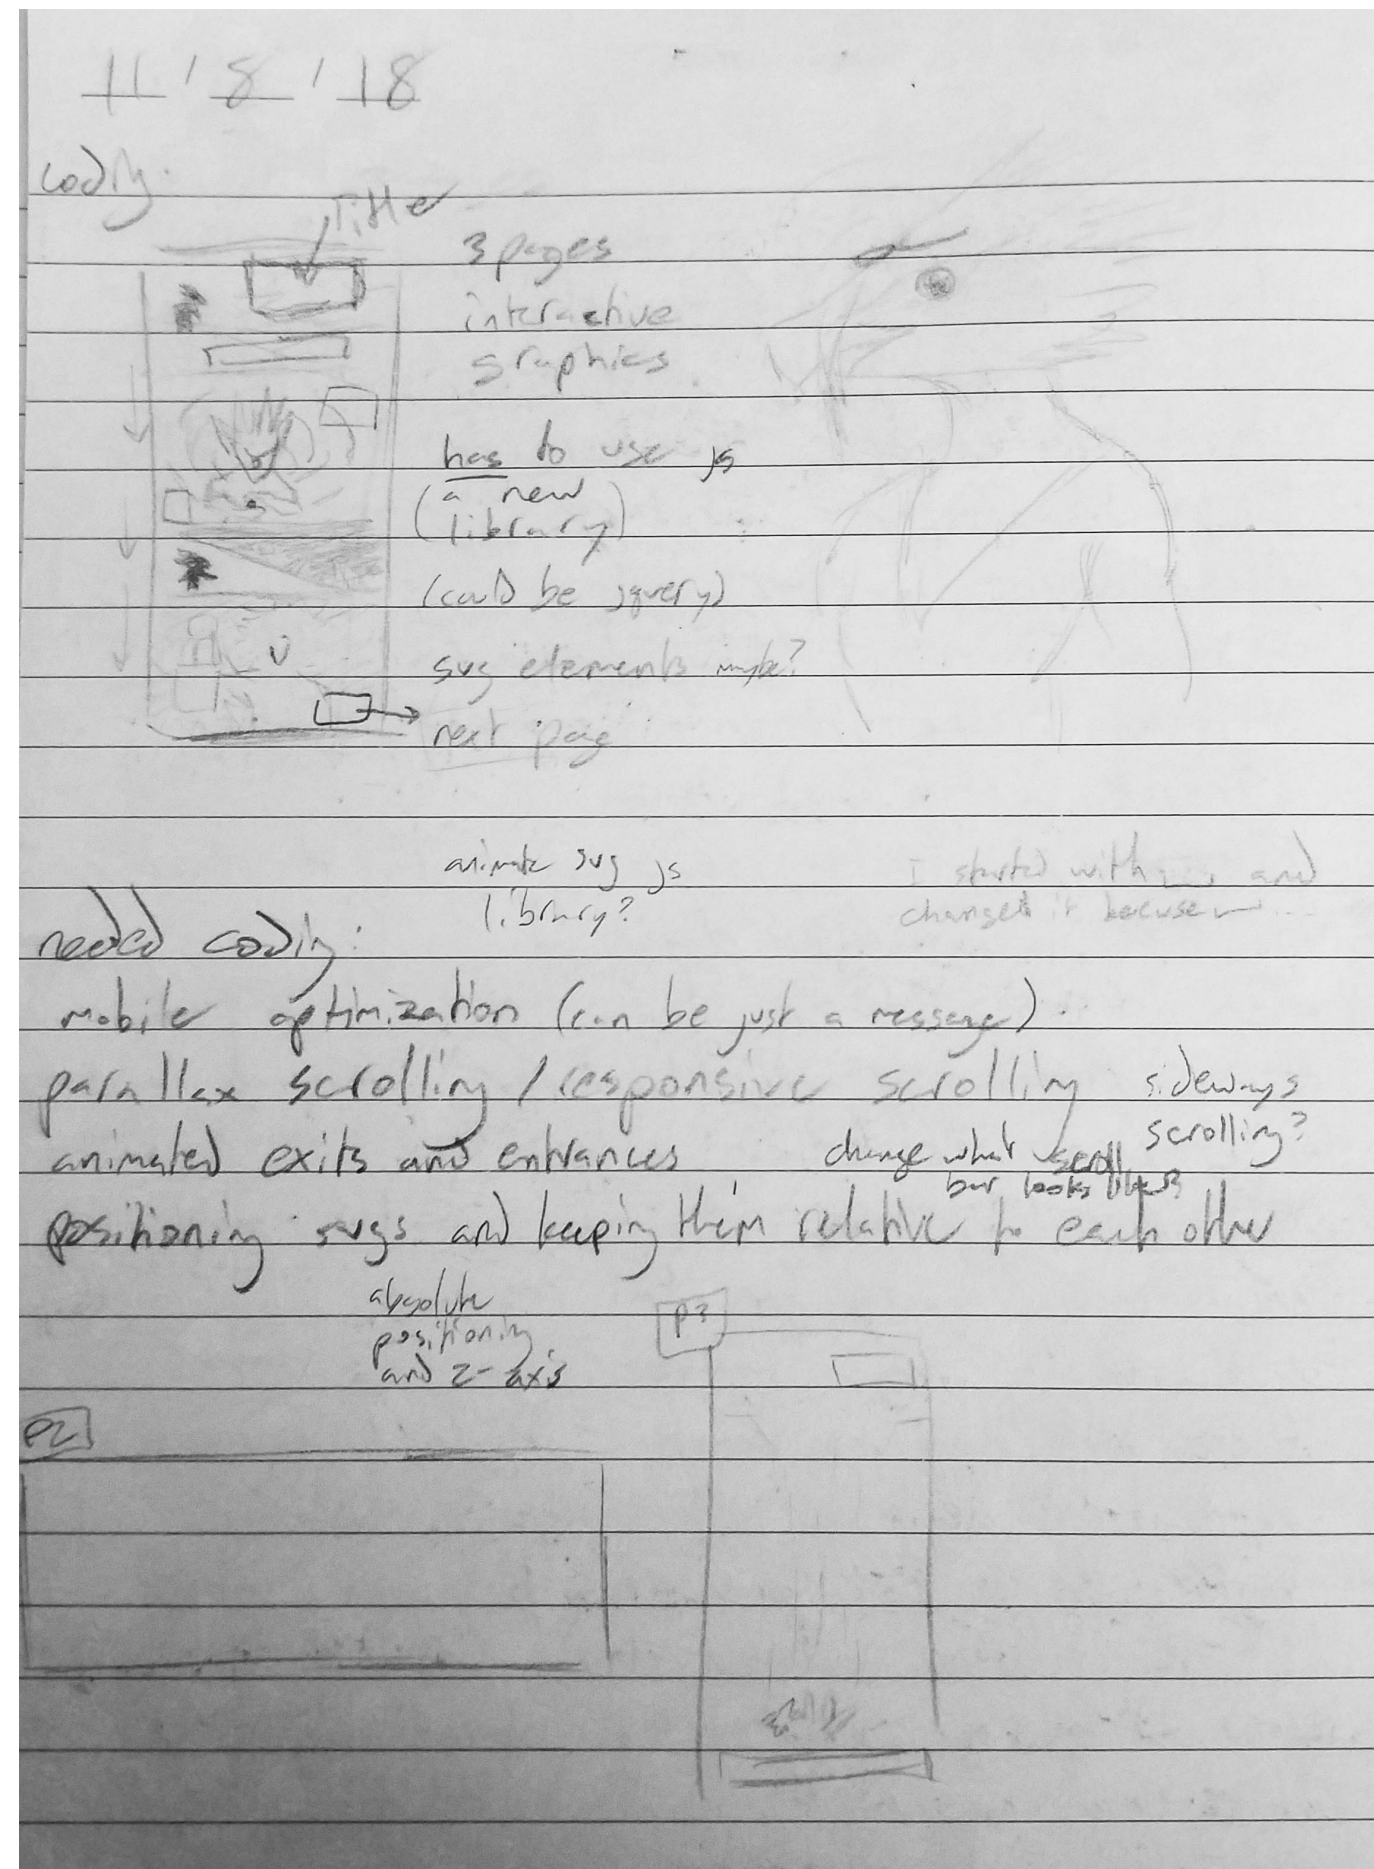 11 / 8 / 18
coding:
Title
3 pages
interactive
graphics
has to use js
(a new
library)
(could be jquery)
svg elements maybe?
next page
animate svg js
library?
I started with and
changed it because
needed coding:
mobile optimization (can be just a message)
parallax scrolling / responsive scrolling
sideways
scrolling?
animated exits and entrances
change what scroll
bar looks like?
positioning svgs and keeping them relative to each other
absolute
positioning
and z-axis
p3
p2